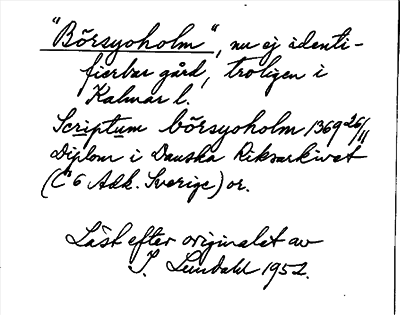 "Börsyoholm", nu ej identi-
fierbar gård, troligen i
Kalmar l.
Scriptum börsyoholm 1369 26/11
Diplom i Danska Riksarkivet
(C 6 Adk. Sverige) or.
Läst efter originalet av
I. Lundahl 1952.